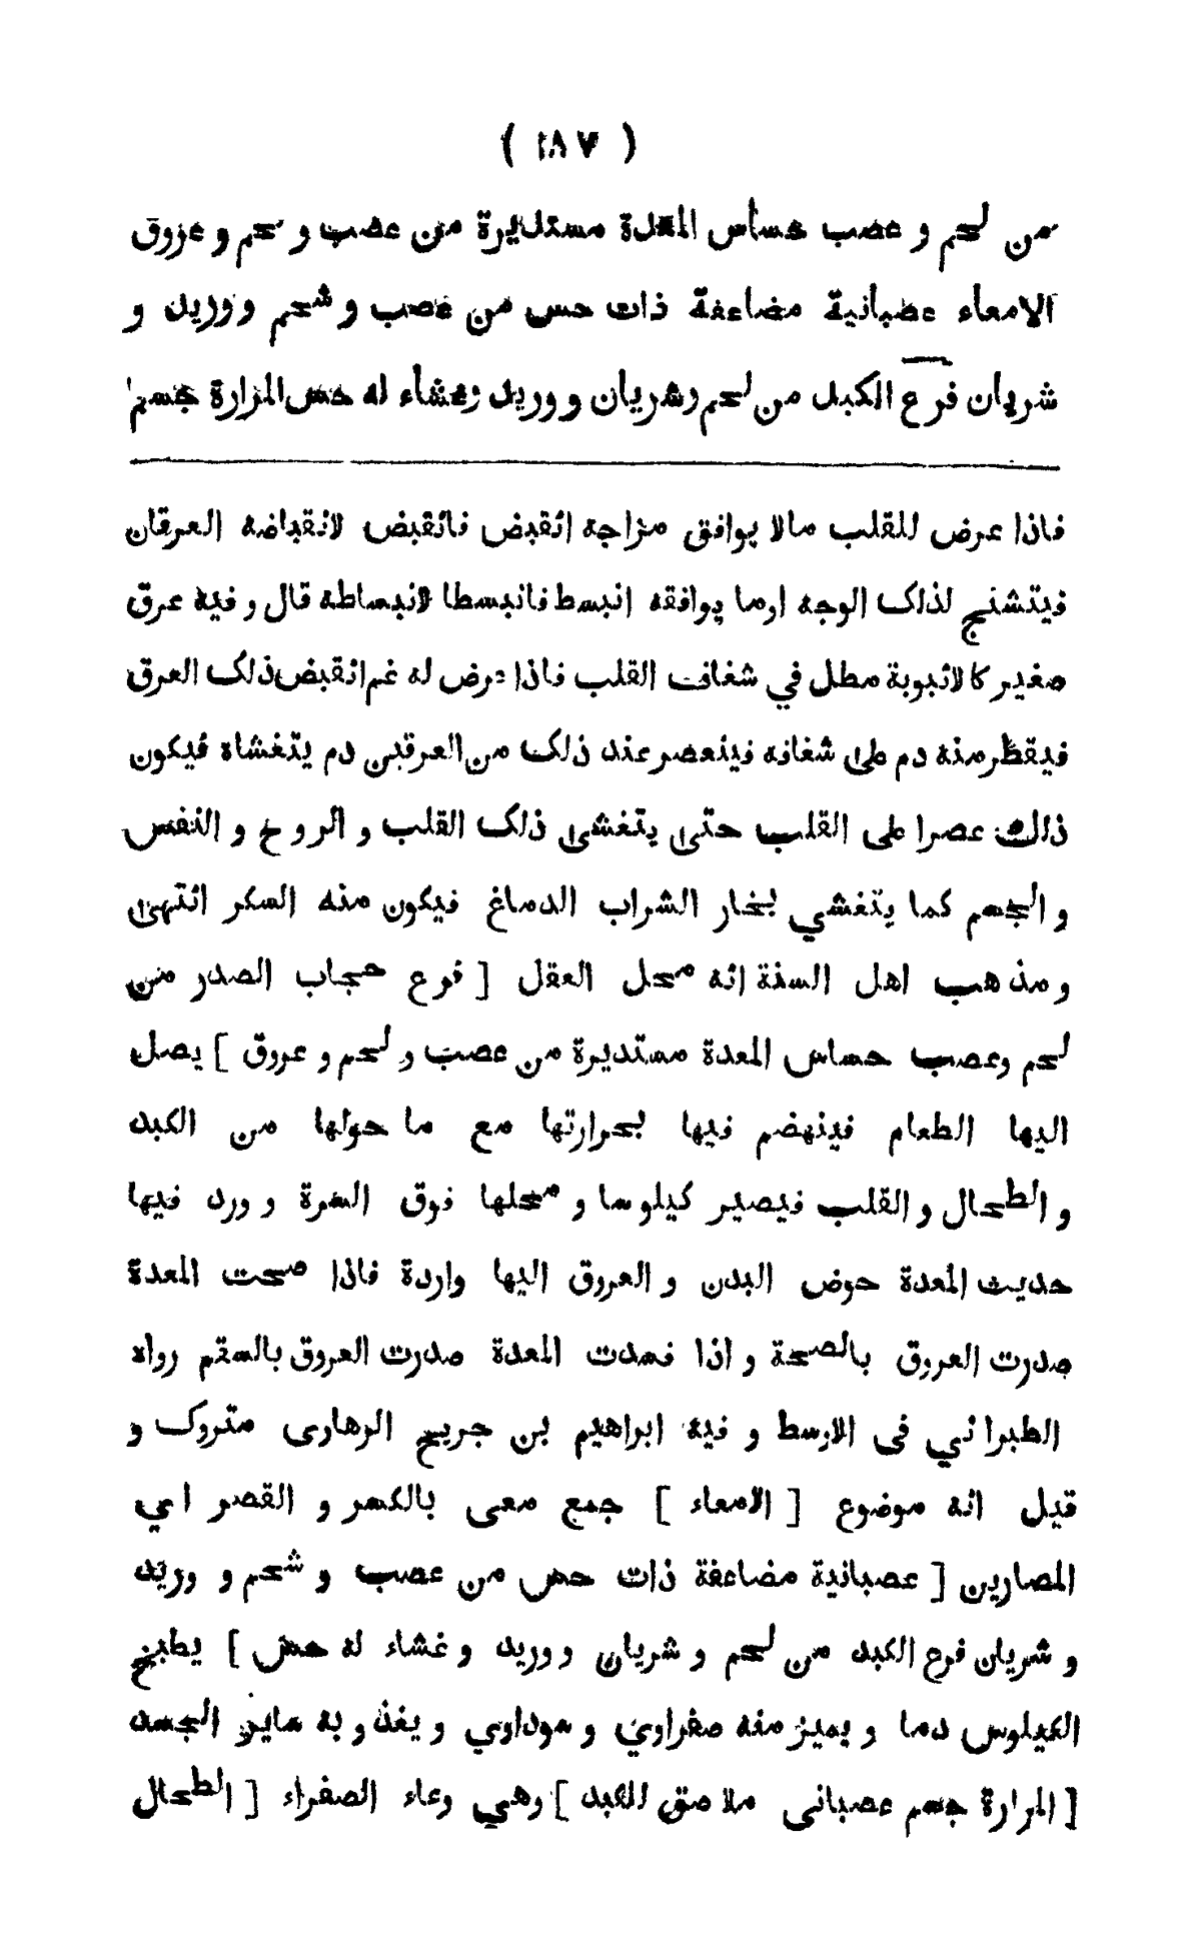 ( ١٨٧ )
من لحم و عصب حساس المعدة مستديرة من عصب و لحم و عروق
الامعاء عصبانية مضاعفة ذات حس من عصب و شحم ووريد و
شريان فرع الكبد من لحم وشريان و وريد وغشاء له حس المرارة جسم
فاذا عرض للقلب مالا يوافق مزاجه انقبض فانقبض لانقباضه العرقان
فيتشنج لذلك الوجه اوما يوافقه انبسط فانبسطا لانبساطه قال و فيه عرق
صغير كالانبوبة مطل في شغاف القلب فاذا عرض له غم انقبض ذلك العرق
فيقطر منه دم على شغافه فينعصر عند ذلك من العرقين دم يتغشاه فيكون
ذلك عصرا على القلب حتى يتغشى ذلك القلب و الروح و النفس
و الجسم كما يتغشي بخار الشراب الدماغ فيكون منه السكر انتهى
و مذهب اهل السنة انه محل العقل [ فرع حجاب الصدر من
لحم وعصب حساس المعدة مستديرة من عصب و لحم و عروق ] يصل
اليها الطعام فينهضم فيها بحرارتها مع ما حولها من الكبد
و الطحال و القلب فيصير كيلوسا و محلها فوق السرة و ورد فيها
حديث المعدة حوض البدن و العروق اليها واردة فاذا صحت المعدة
صدرت العروق بالصحة و اذا فسدت المعدة صدرت العروق بالسقم رواه
الطبراني فى الاوسط و فيه ابراهيم بن جريج الرهاوى متروك و
قيل انه موضوع [ الامعاء ] جمع معى بالكسر و القصر اي
المصارين [ عصبانية مضاعفة ذات حس من عصب و شحم و وريد
و شريان فرع الكبد من لحم و شريان و وريد و غشاء له حس ] يطبخ
الكيلوس دما و يميز منه صفراوي و سوداوي و يغذو به سايز الجسد
[ المرارة جسم عصبانى ملاصق للكبد ] وهي وعاء الصفراء [ الطحال